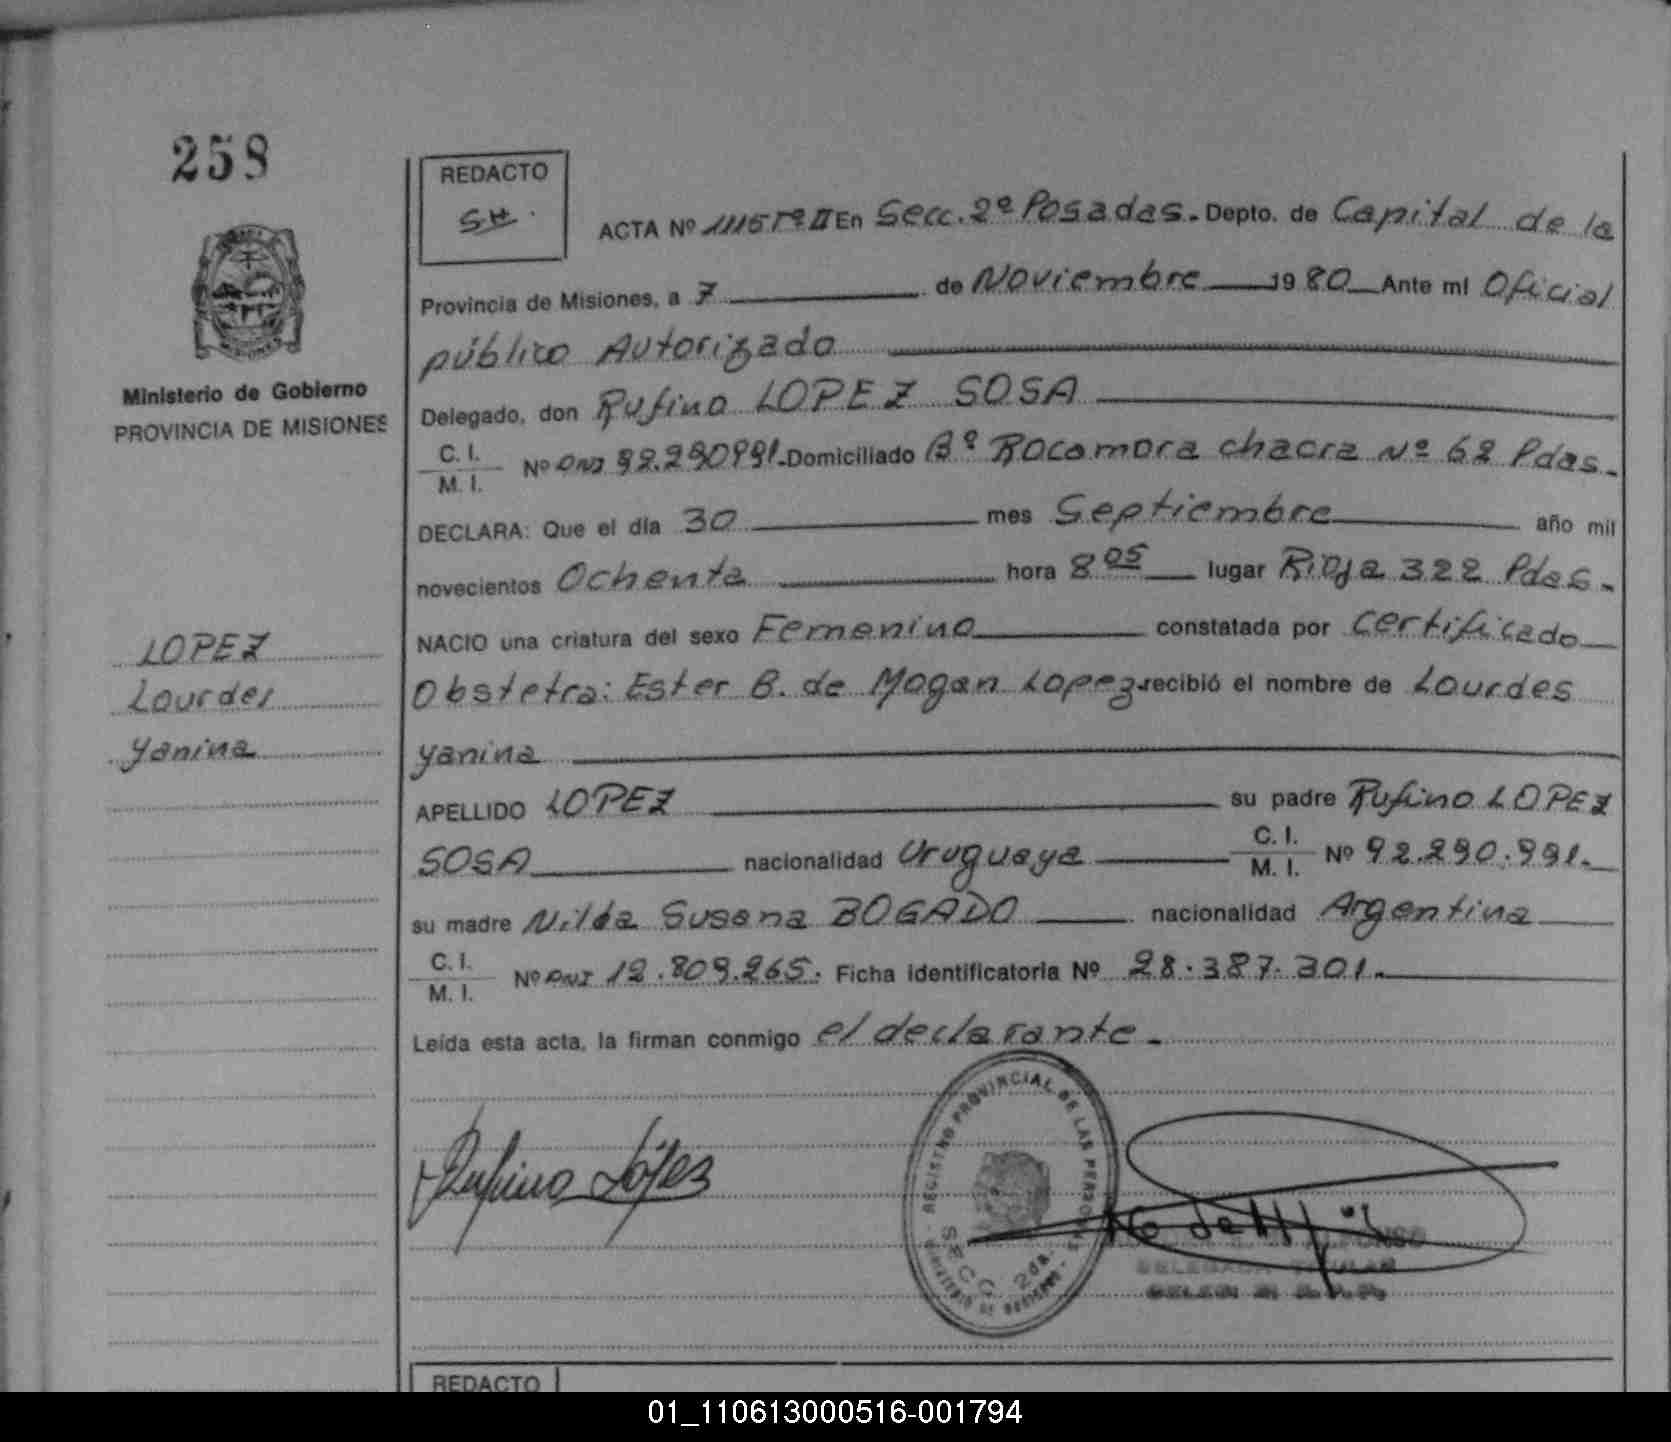 258
REDACTO
S.H.
ACTA Nº 1115 Tº II En Secc. 2ª Posadas. Depto. de Capital de la
Provincia de Misiones, a 7 de Noviembre 1980 Ante mí Oficial
público Autorizado
Delegado, don Rufino LOPEZ SOSA
C. I.
M. I. Nº DNI 92.290991. Domiciliado Bº Rocamora chacra Nº 62 Pdas.
DECLARA: Que el día 30 mes Septiembre año mil
novecientos Ochenta hora 8 05 lugar Rioja 322 Pdas.
NACIO una criatura del sexo Femenino constatada por certificado
Obstetra: Ester B. de Mogan Lopez recibió el nombre de Lourdes
Yanina
APELLIDO LOPEZ su padre Rufino LOPEZ
SOSA nacionalidad Uruguaya C. I.
M. I. Nº 92.290.991.
su madre Nilda Susana BOGADO nacionalidad Argentina
C. I.
M. I. Nº DNI 12.809.265. Ficha identificatoria Nº 28.387.301.
Leída esta acta, la firman conmigo el declarante.
Rufino López
REGISTRO PROVINCIAL DE LAS PERSONAS
SECC. 2da.
DELEGADA TITULAR
Ministerio de Gobierno
PROVINCIA DE MISIONES
LOPEZ
Lourdes
Yanina
REDACTO
01_110613000516-001794